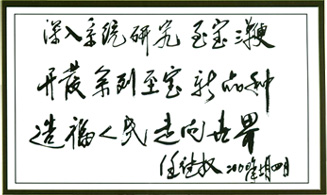 深入系统研究至宝三鞭
开发系列至宝新品种
造福人民走向世界
任继权 二〇〇〇年七月四日